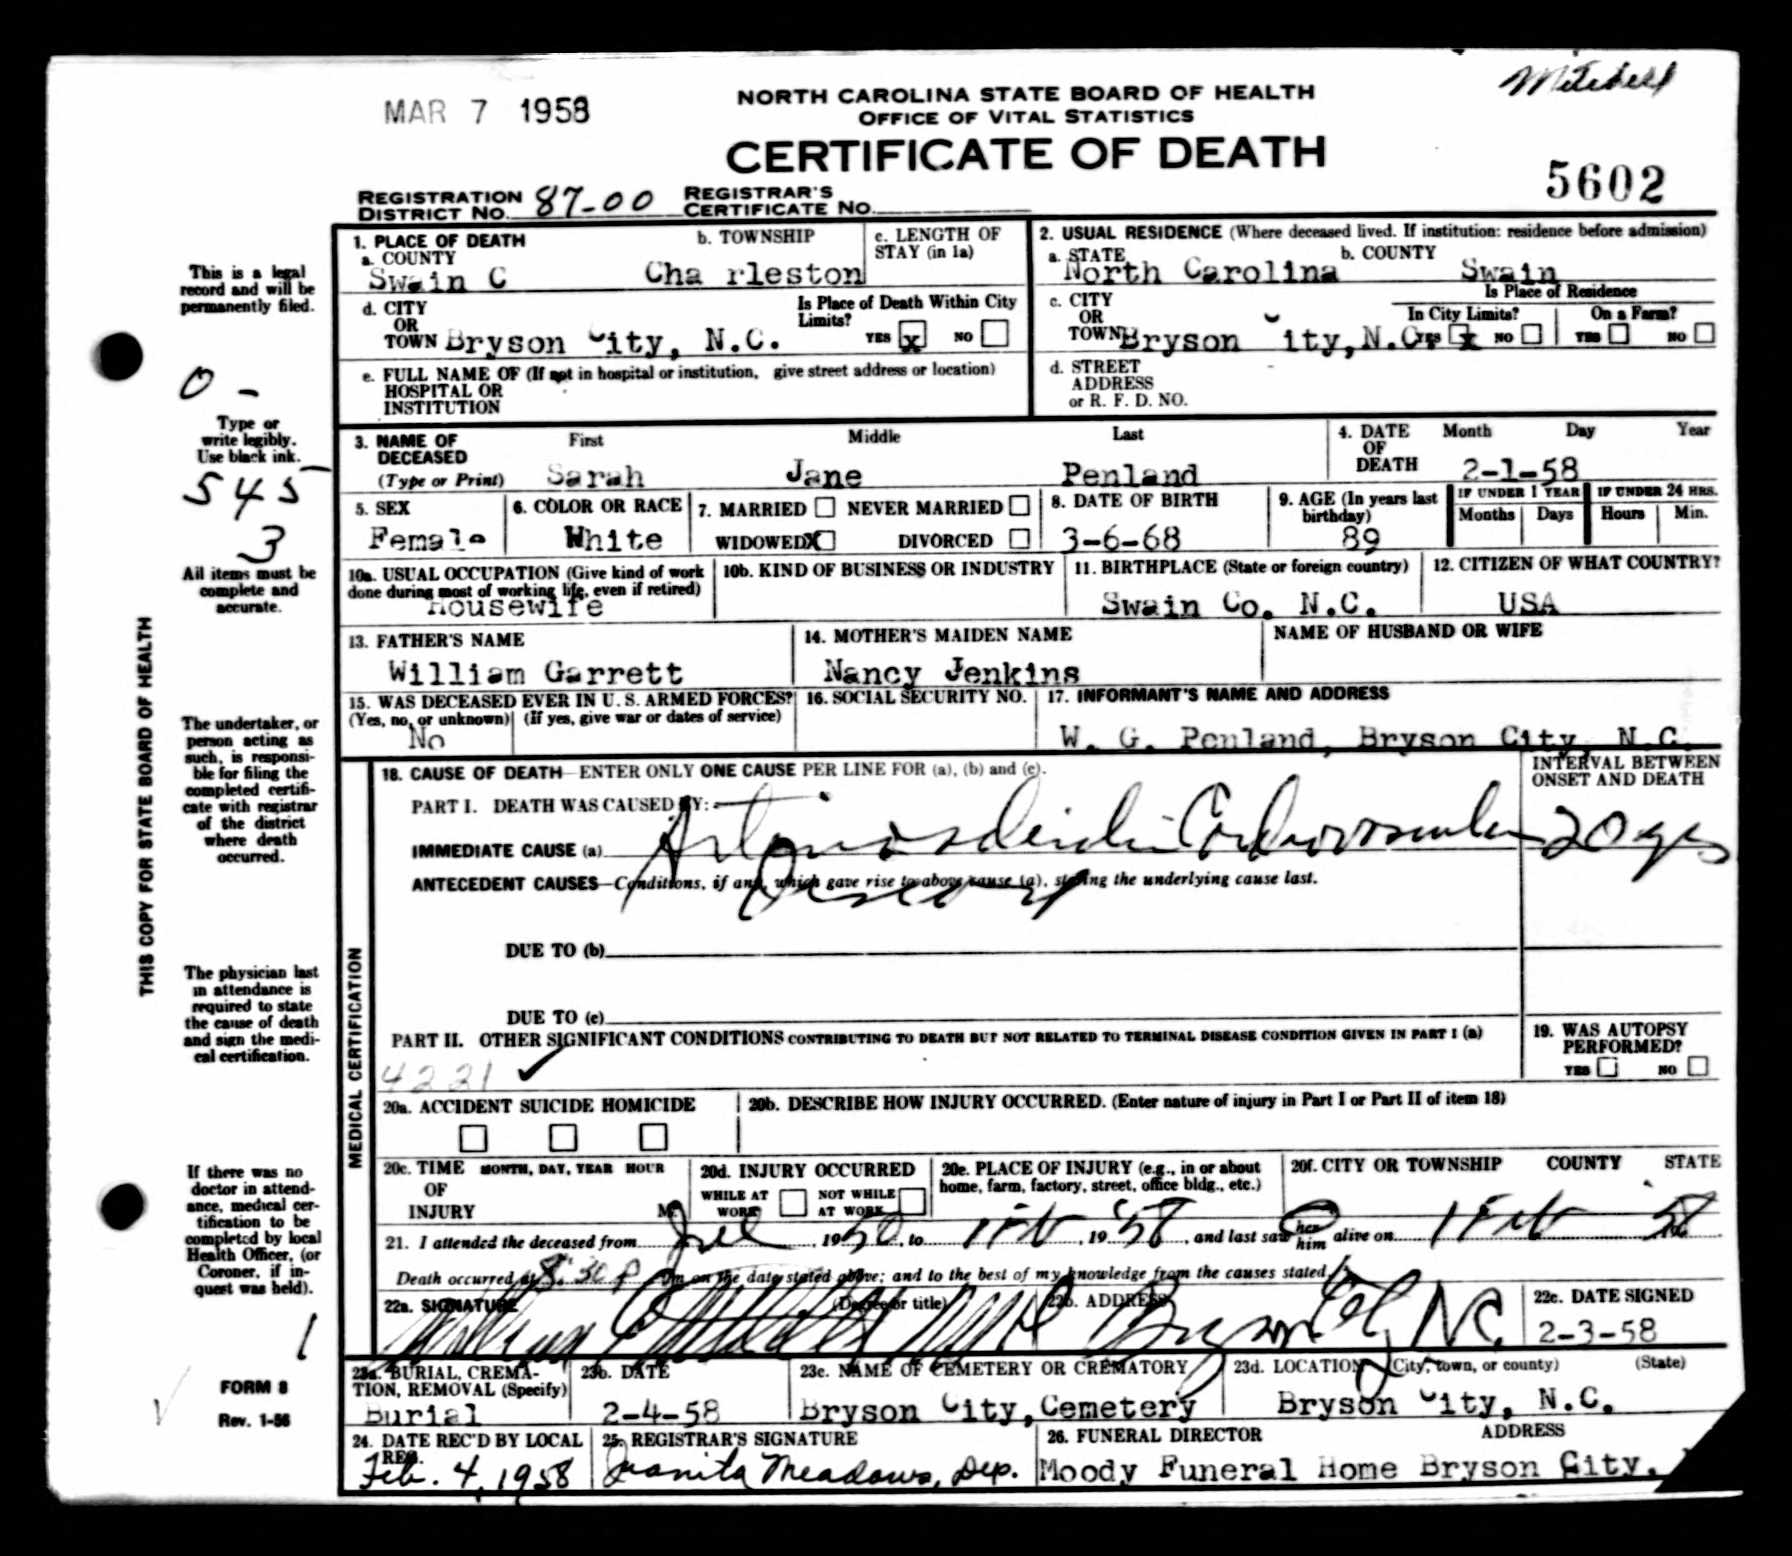 Mitchell
MAR 7 1958
NORTH CAROLINA STATE BOARD OF HEALTH
OFFICE OF VITAL STATISTICS
CERTIFICATE OF DEATH
5602
REGISTRATION DISTRICT NO. 87-00 REGISTRAR'S CERTIFICATE NO.
This is a legal record and will be permanently filed.
0 -
Type or write legibly. Use black ink.
545
3
All items must be complete and accurate.
THIS COPY FOR STATE BOARD OF HEALTH
The undertaker, or person acting as such, is responsible for filing the completed certificate with registrar of the district where death occurred.
The physician last in attendance is required to state the cause of death and sign the medical certification.
If there was no doctor in attendance, medical certification to be completed by local Health Officer, (or Coroner, if inquest was held).
1
FORM 8
Rev. 1-56
1. PLACE OF DEATH
a. COUNTY Swain C
b. TOWNSHIP Cha rleston
c. LENGTH OF STAY (in 1a)
2. USUAL RESIDENCE (Where deceased lived. If institution: residence before admission)
a. STATE North Carolina
b. COUNTY Swain
d. CITY OR TOWN Bryson City, N.C.
Is Place of Death Within City Limits? YES x NO
c. CITY OR TOWN Bryson City, N.C.
Is Place of Residence
In City Limits? YES x NO
On a Farm? YES NO
e. FULL NAME OF (If not in hospital or institution, give street address or location) HOSPITAL OR INSTITUTION
d. STREET ADDRESS or R. F. D. NO.
3. NAME OF DECEASED (Type or Print)
First Sarah
Middle Jane
Last Penland
4. DATE OF DEATH Month Day Year
2-1-58
5. SEX Female
6. COLOR OR RACE White
7. MARRIED NEVER MARRIED
WIDOWED X DIVORCED
8. DATE OF BIRTH 3-6-68
9. AGE (In years last birthday) 89
IF UNDER 1 YEAR Months Days
IF UNDER 24 HRS. Hours Min.
10a. USUAL OCCUPATION (Give kind of work done during most of working life, even if retired) Housewife
10b. KIND OF BUSINESS OR INDUSTRY
11. BIRTHPLACE (State or foreign country) Swain Co. N.C.
12. CITIZEN OF WHAT COUNTRY? USA
13. FATHER'S NAME William Garrett
14. MOTHER'S MAIDEN NAME Nancy Jenkins
NAME OF HUSBAND OR WIFE
15. WAS DECEASED EVER IN U. S. ARMED FORCES? (Yes, no, or unknown) (If yes, give war or dates of service)
No
16. SOCIAL SECURITY NO.
17. INFORMANT'S NAME AND ADDRESS
W. G. Penland, Bryson City, N.C.
MEDICAL CERTIFICATION
18. CAUSE OF DEATH—ENTER ONLY ONE CAUSE PER LINE FOR (a), (b) and (c).
INTERVAL BETWEEN ONSET AND DEATH
PART I. DEATH WAS CAUSED BY:
IMMEDIATE CAUSE (a) Arteriosclerotic Cardiovascular Disease 20 yrs
ANTECEDENT CAUSES—Conditions, if any, which gave rise to above cause (a), stating the underlying cause last.
DUE TO (b)
DUE TO (c)
PART II. OTHER SIGNIFICANT CONDITIONS CONTRIBUTING TO DEATH BUT NOT RELATED TO TERMINAL DISEASE CONDITION GIVEN IN PART I (a)
4221 ✓
19. WAS AUTOPSY PERFORMED? YES NO
20a. ACCIDENT SUICIDE HOMICIDE
20b. DESCRIBE HOW INJURY OCCURRED. (Enter nature of injury in Part I or Part II of item 18)
20c. TIME OF INJURY MONTH, DAY, YEAR HOUR M.
20d. INJURY OCCURRED WHILE AT WORK NOT WHILE AT WORK
20e. PLACE OF INJURY (e.g., in or about home, farm, factory, street, office bldg., etc.)
20f. CITY OR TOWNSHIP COUNTY STATE
21. I attended the deceased from 1950, to 1 Feb, 1958, and last saw her him alive on 1 Feb 58
Death occurred at 8:30 P m on the date stated above; and to the best of my knowledge from the causes stated.
22a. SIGNATURE (Degree or title) William Mitchell MD
22b. ADDRESS Bryson City NC
22c. DATE SIGNED 2-3-58
23a. BURIAL, CREMATION, REMOVAL (Specify) Burial
23b. DATE 2-4-58
23c. NAME OF CEMETERY OR CREMATORY Bryson City, Cemetery
23d. LOCATION (City, town, or county) (State) Bryson City, N.C.
24. DATE REC'D BY LOCAL REG. Feb. 4, 1958
25. REGISTRAR'S SIGNATURE Juanita Meadows, Dep.
26. FUNERAL DIRECTOR ADDRESS
Moody Funeral Home Bryson City,